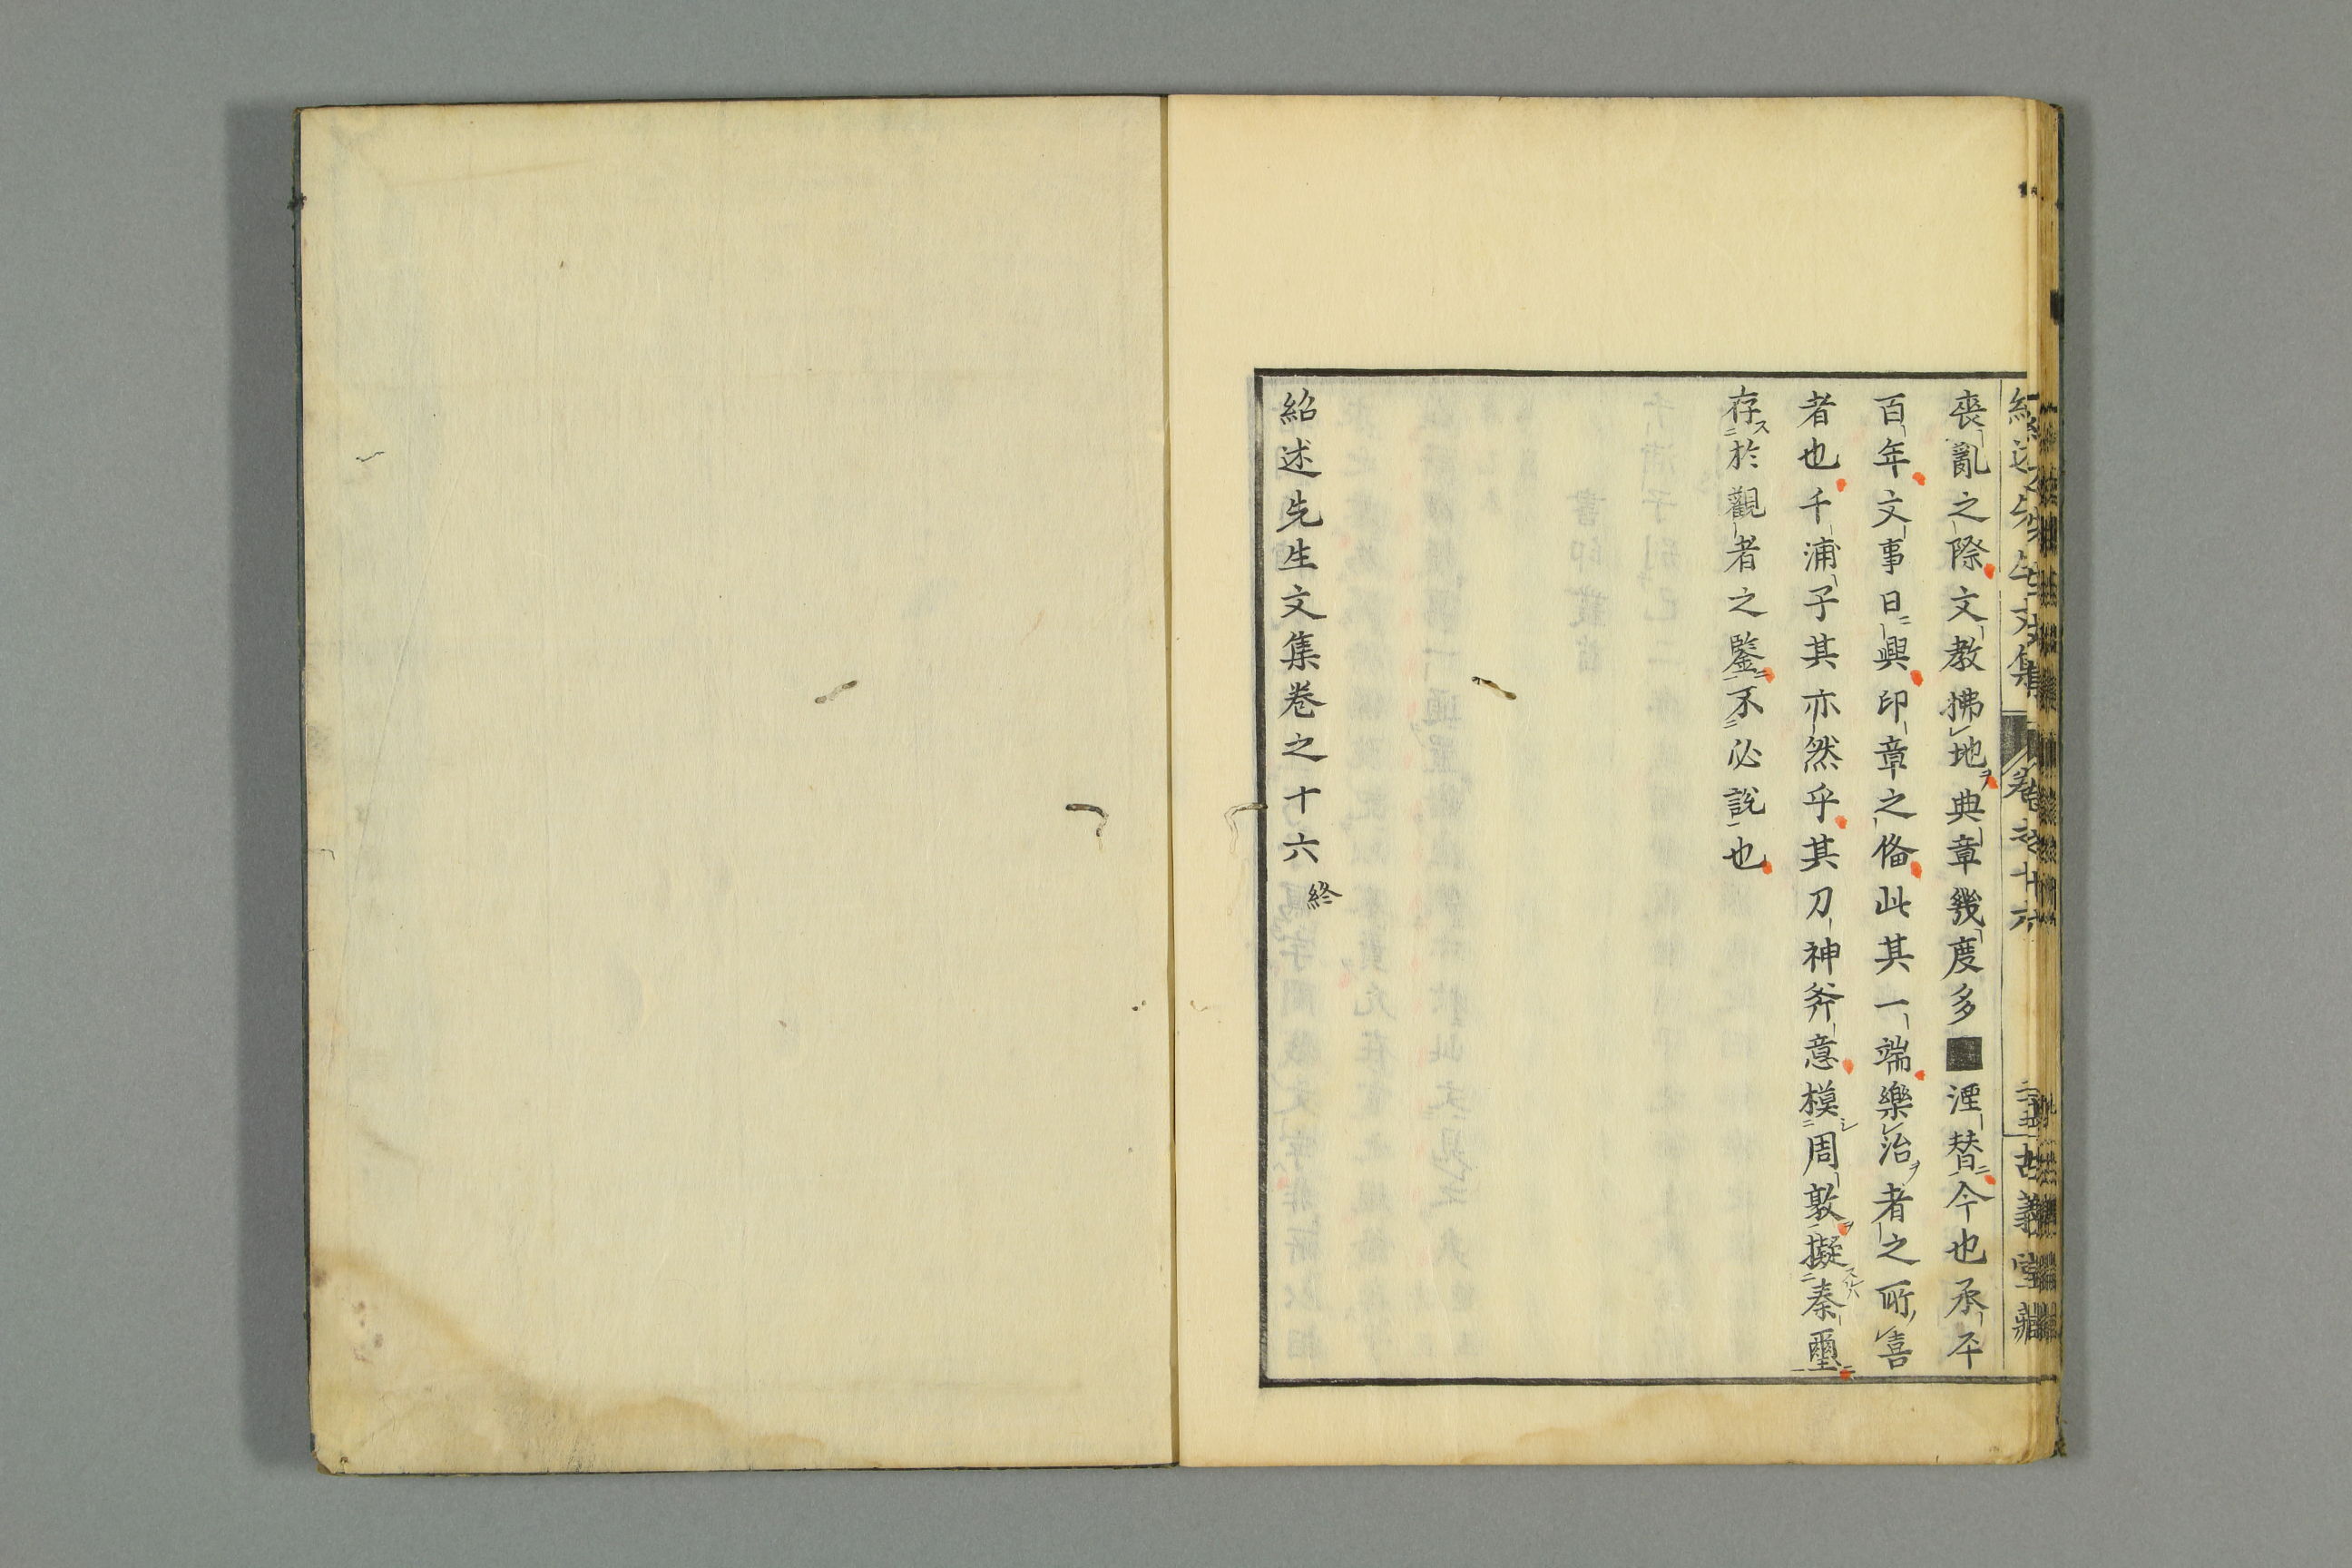 喪亂之際文教拂地典章幾度多■湮替今也承平
百年文事日興印章之俻此其一端樂治者之所喜
者也千浦子其亦然乎其刀神斧意模周敦擬秦璽
存於觀者之鑒不必說也
紹述先生文集卷之十六 終